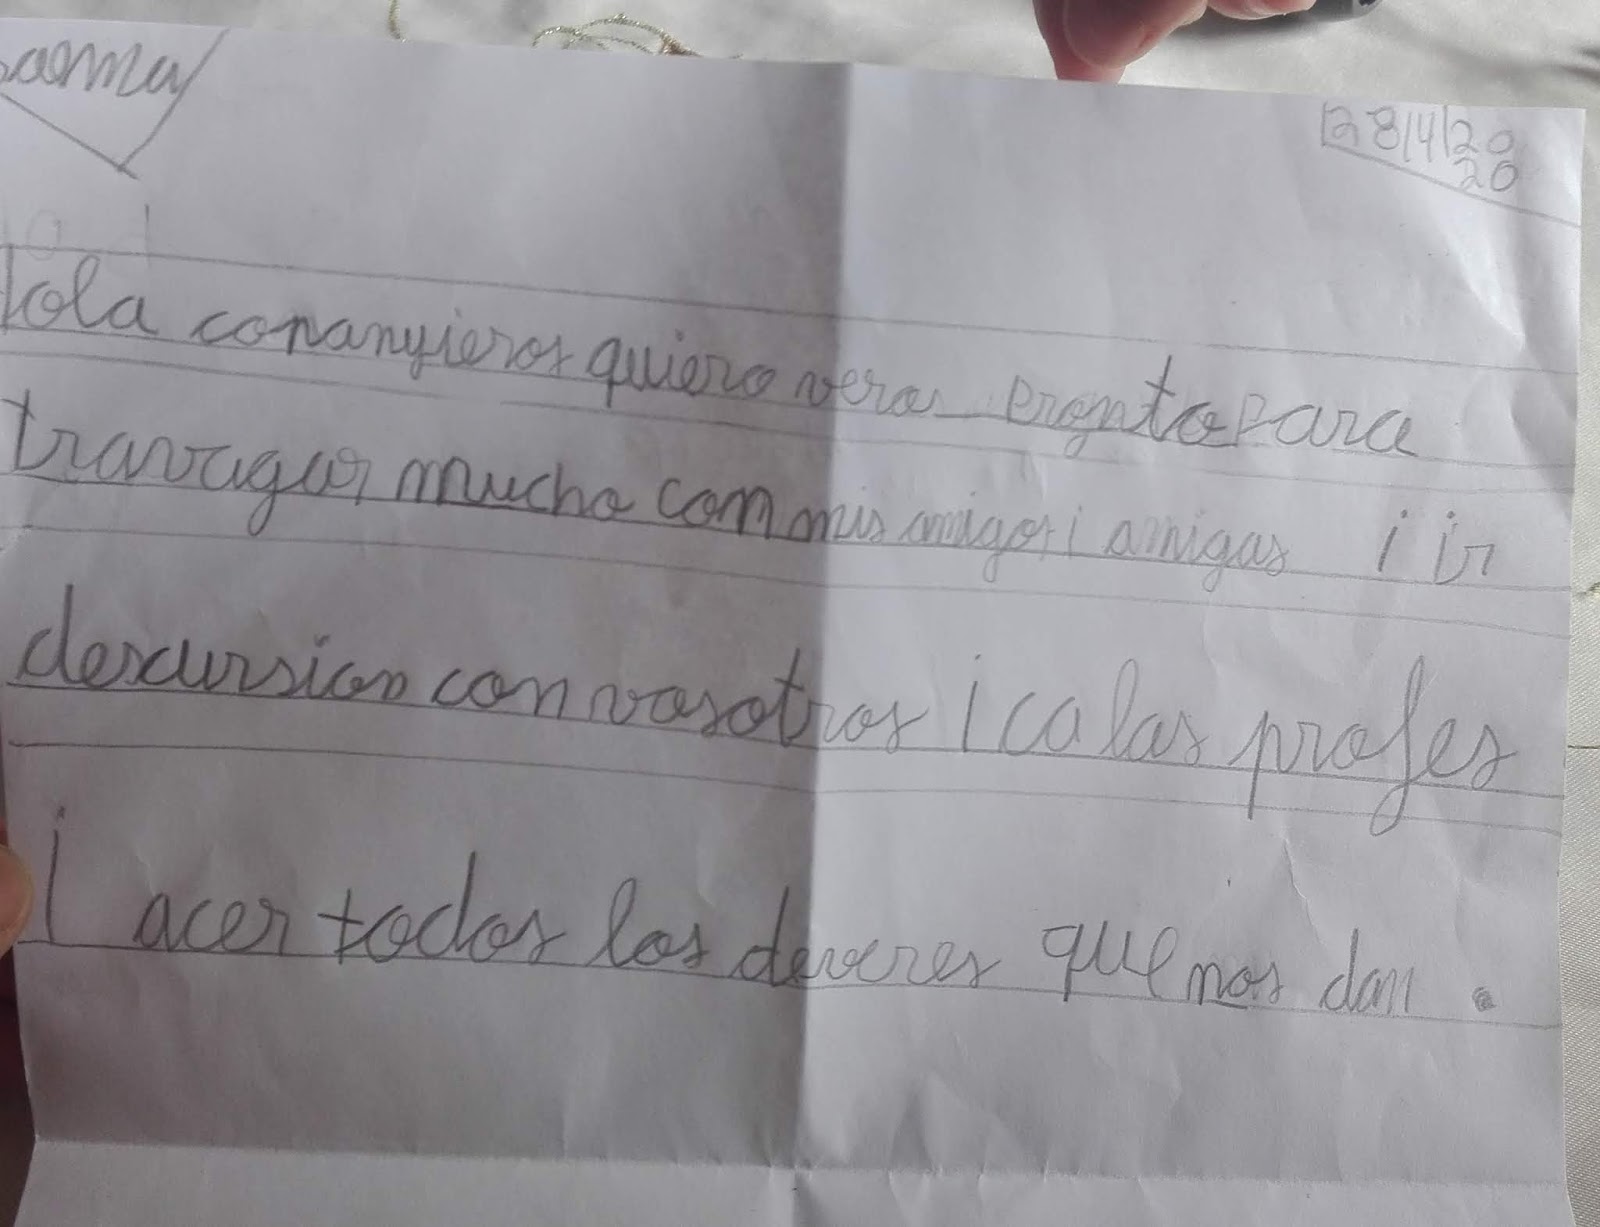 28/4/20
20
Hola conpanyieros quiero veros pronto para
travagar mucho com mis amigos i amigas i ir
descursion con vosotros i co las profes
i acer todos los deveres que nos dan.